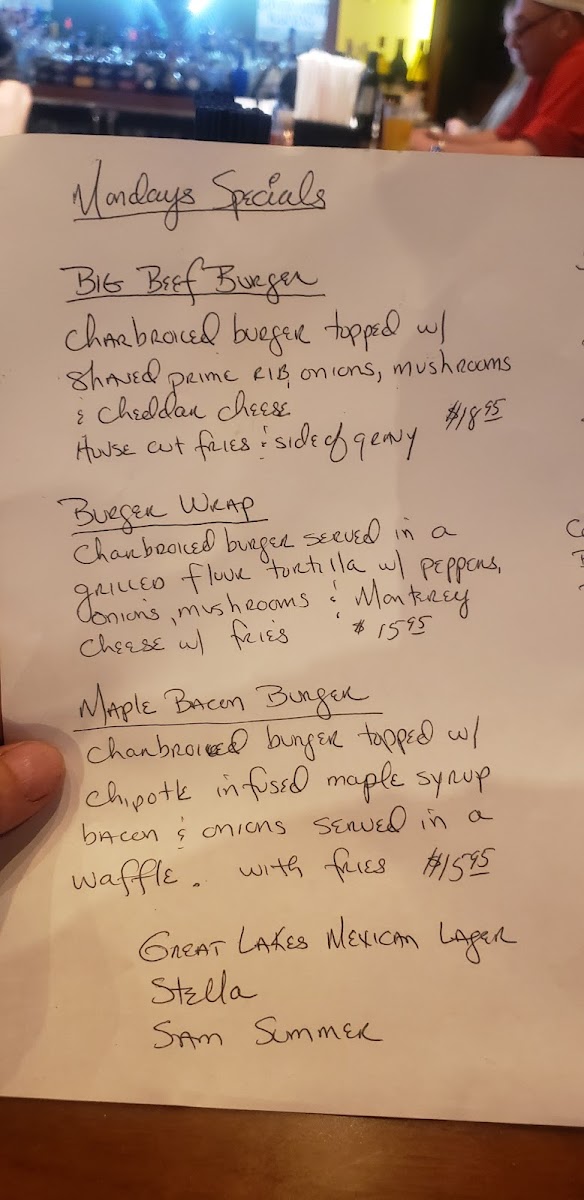 Mondays Specials
Big Beef Burger
Charbroiled burger topped w/
shaved prime rib, onions, mushrooms
& cheddar cheese $18.95
House cut fries & side of gravy
Burger Wrap
Charbroiled burger served in a
grilled flour tortilla w/ peppers,
onions, mushrooms & Monterey
cheese w/ fries $15.95
Maple Bacon Burger
Charbroiled burger topped w/
chipotle infused maple syrup
bacon & onions served in a
waffle. with fries $15.95
Great Lakes Mexican Lager
Stella
Sam Summer